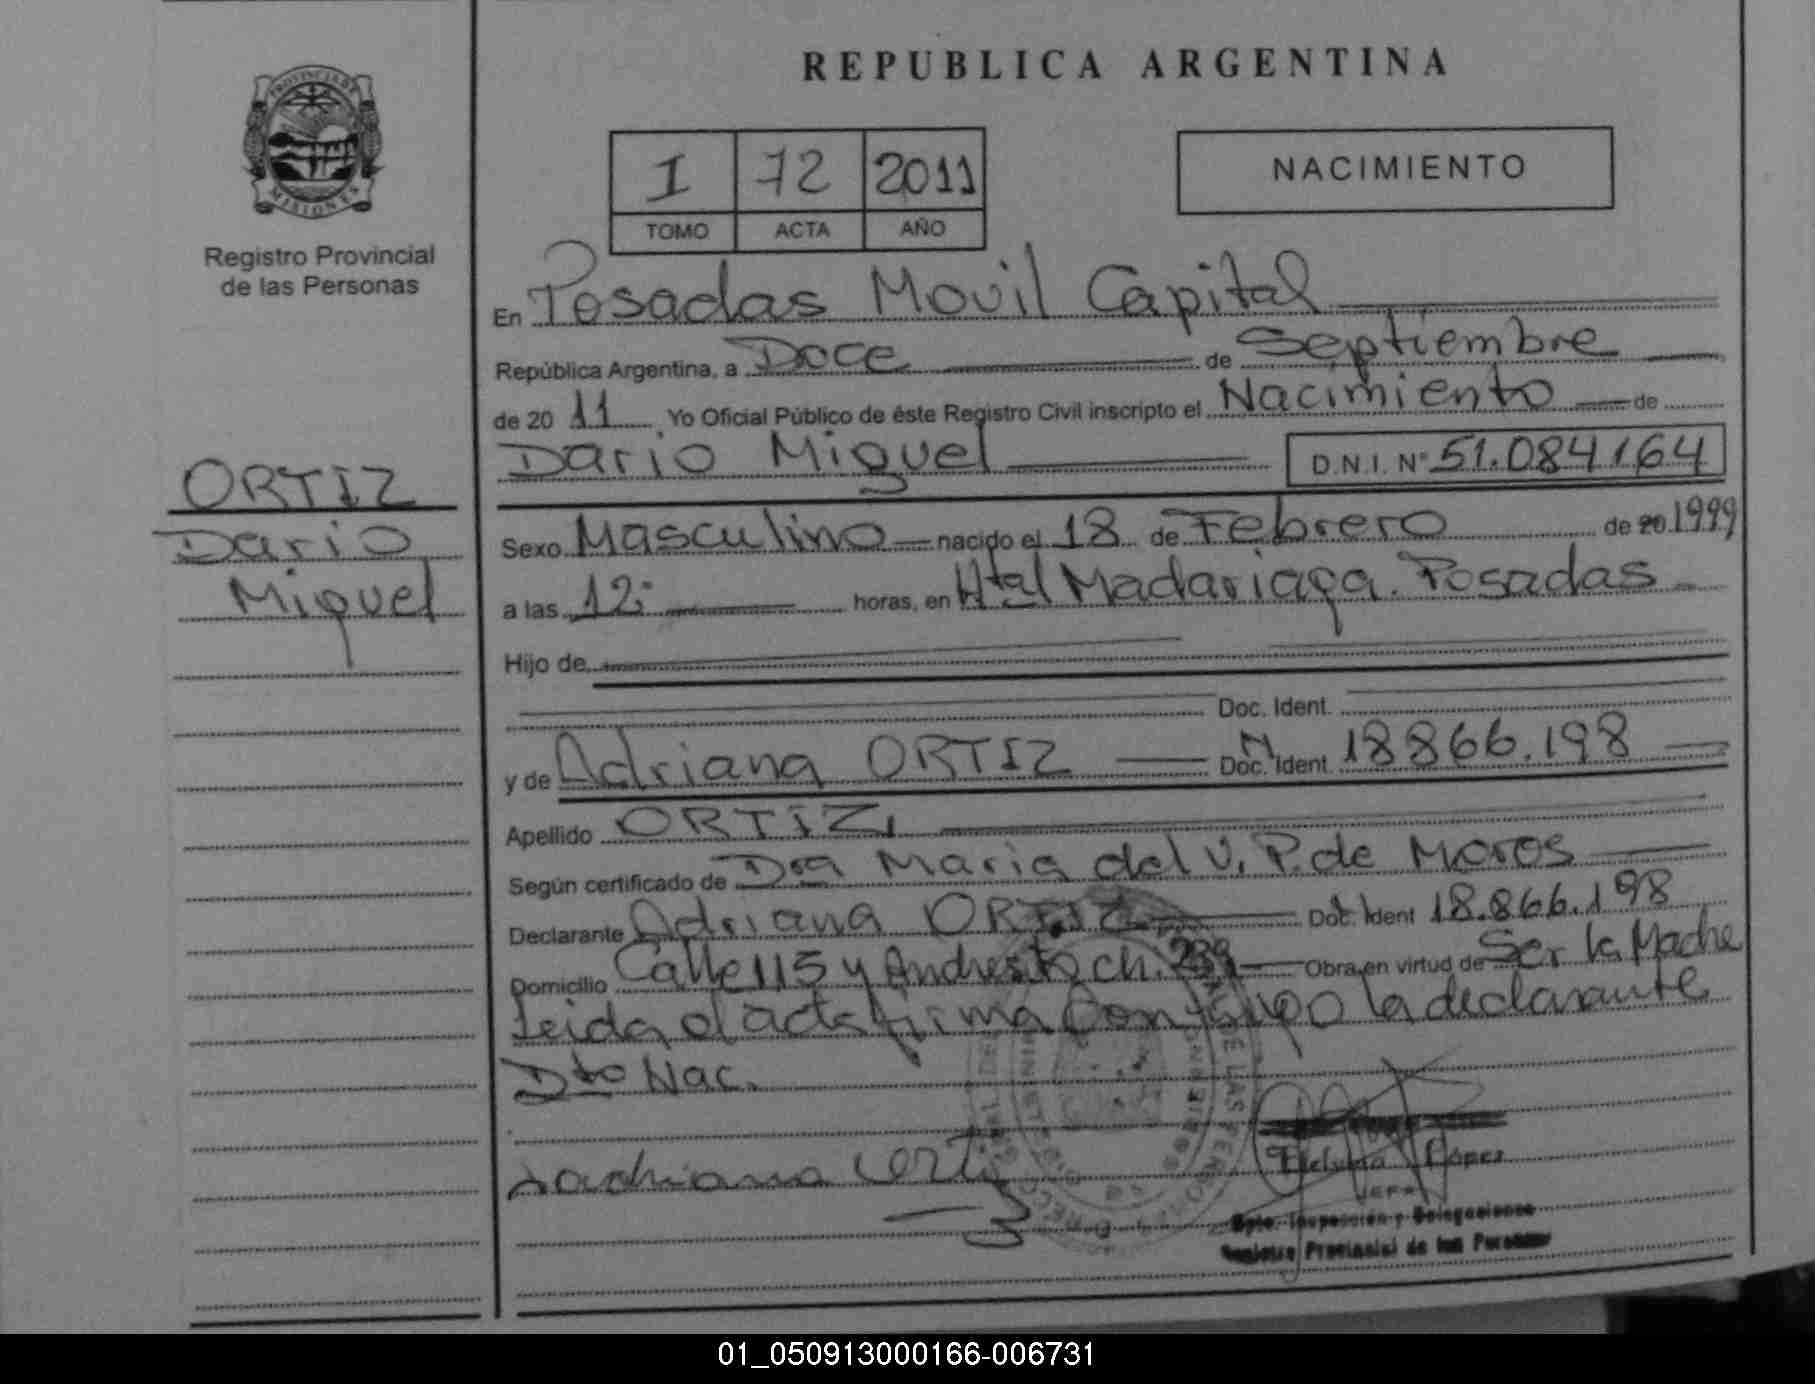 REPUBLICA ARGENTINA
PROVINCIA DE
MISIONES
Registro Provincial
de las Personas
I 72 2011
TOMO ACTA AÑO
NACIMIENTO
ORTIZ
Dario
Miguel
En Posadas Movil Capital
República Argentina, a Doce de Septiembre
de 20 11 Yo Oficial Público de éste Registro Civil inscripto el Nacimiento de
Dario Miguel D.N.I. Nº 51.084164
Sexo Masculino nacido el 18 de Febrero de 20 1999
a las 12: horas, en Htal Madariaga. Posadas
Hijo de
Doc. Ident.
y de Adriana ORTIZ Doc. Ident. 18866.198
Apellido ORTIZ
Según certificado de Dra Maria del V. P. de Moros
Declarante Adriana ORTIZ Doc. Ident 18.866.198
Domicilio Calle 115 y Andresito ch. 239 Obra en virtud de Ser la Madre
Leida el acta firma conmigo la declarante
Dto Nac.
López
JEFA
Dpto. Inspección y Delegaciones
Registro Provincial de las Personas
01_050913000166-006731